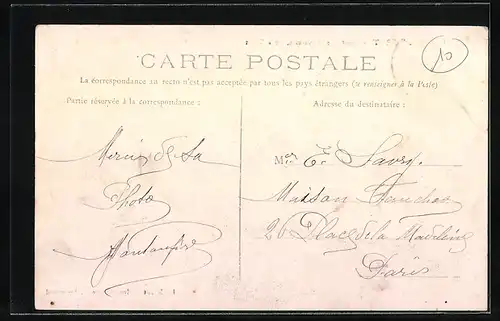 CARTE POSTALE
10
La correspondance au recto n'est pas acceptée par tous les pays étrangers (se renseigner à la Poste)
Partie réservée à la correspondance :
Adresse du destinataire :
Merci de sa
Photo
Mer E. Savry.
Maison
26 Place de la Madeleine
Paris